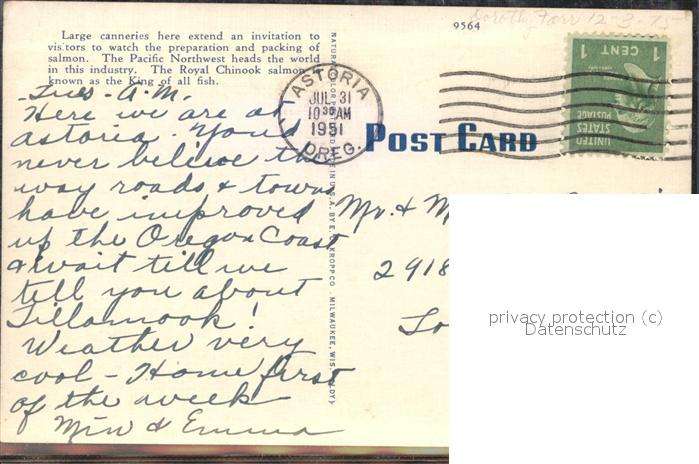 9564
Large canneries here extend an invitation to
visitors to watch the preparation and packing of
salmon. The Pacific Northwest heads the world
in this industry. The Royal Chinook salmon
known as the King of all fish.
ASTORIA
JUL 31
10 30 AM
1951
OREG.
1 CENT 1
UNITED
STATES
POSTAGE
POST CARD
Tues - A.M.
Here we are at
Astoria. You'd
never believe the
way roads & towns
have improved
up the Oregon Coast
& wait till we
tell you about
Tillamook!
Weather very
cool - Home first
of the week
Min & Emma
Mr. & M
2918
Lo
MILWAUKEE, WIS.
privacy protection (c)
Datenschutz